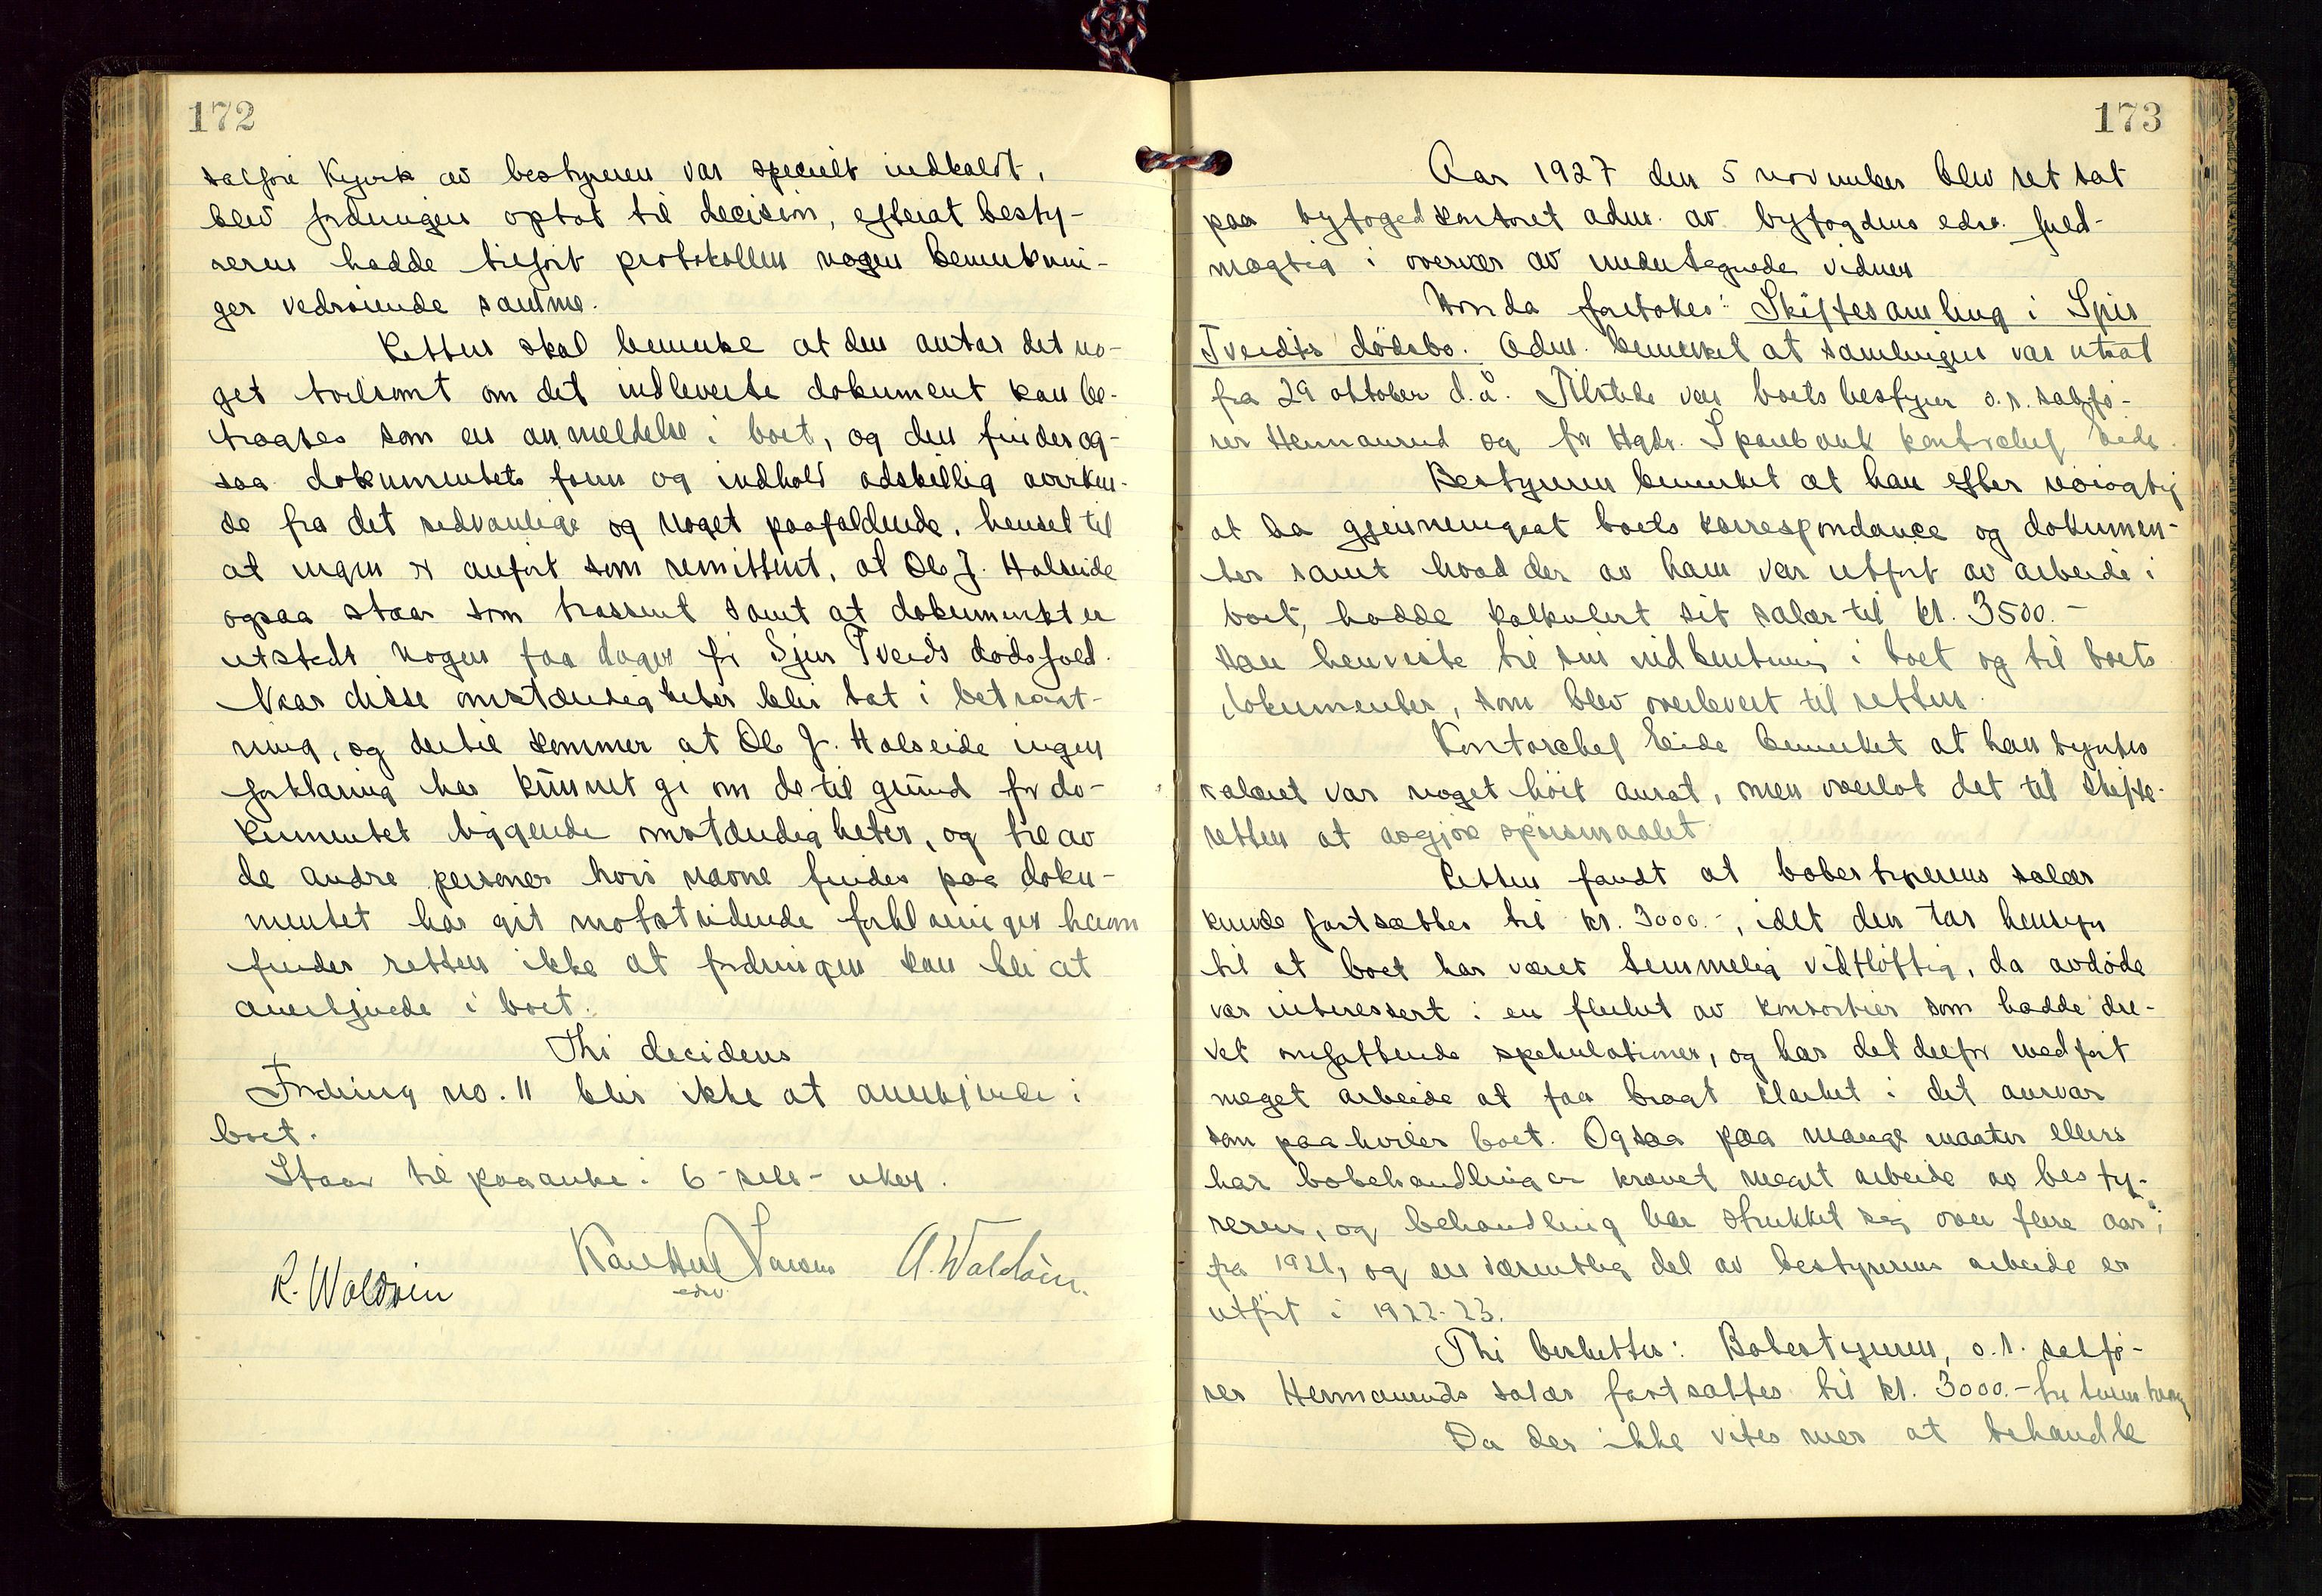 172
salfører Kyvik av bestyreren var specielt indkaldt,
blev fordringen optat til decision, efterat besty-
reren hadde tilført protokollen nogen bemerknin-
ger vedrørende samme.
Retten skal bemerke at den antar det no-
get tvilsomt om det indleverte dokument kan be-
tragtes som en anmeldelse i boet, og den finder og-
saa dokumentets form og indhold adskillig avviken-
de fra det sedvanlige og noget paafaldende, henset til
at ingen er anført som remittent, at Ole J. Halseide
ogsaa staar som trassent samt at dokumentet er
utstedt nogen faa dager før Sjur Tveidts dødsfald.
Naar disse omstændigheter blir tat i betragt-
ning, og dertil kommer at Ole J. Halseide ingen
forklaring har kunnet gi om de til grund for do-
kumentet liggende omstændigheter, og tre av
de andre personer hvis navne findes paa doku-
mentet har git motstridende forklaringer herom
finder retten ikke at fordringen kan bli at
anerkjende i boet.
Thi decideres
Fordring no. 11 blir ikke at anerkjende i
boet.
Staar til paaanke i 6 - seks - uker.
R. Waldvin
edsv.
A. Waldvin.
173
Aar 1927 den 5 november blev ret sat
paa byfogedkontoret adm. av byfogdens edsv. fuld-
mægtig i overvær av undertegnede vidner
Hvorda foretokes: Skiftesamling i Sjur
Tveidts dødsbo. Adm. bemerket at samlingen var utsat
fra 29 oktober d.å. Tilstede var boets bestyrer o.r. sakfø-
rer Hermanrud og for Hgds. Sparebank kontorchef Eide.
Bestyreren bemerket at han efter nøiagtig
at ha gjennemgaat boets korrespondance og dokumen-
ter samt hvad der av ham var utført av arbeide i
boet, hadde kalkulert sit salær til kr. 3500.-
Han henviste til sin indberetning i boet og til boets
dokumenter, som blev overlevert til retten.
Kontorchef Eide bemerket at han syntes
salæret var noget høit ansat, men overlot det til skifte-
retten at avgjøre spørsmaalet.
Retten fandt at bobestyrerens salær
kunde fastsættes til kr. 3000.-, idet den tar hensyn
til at boet har været temmelig vidtløftig, da avdøde
var interessert i en flerhet av konsortier som hadde dre-
vet omfattende spekulationer, og har det derfor medført
meget arbeide at faa bragt klarhet i det ansvar
som paahviler boet. Ogsaa paa mange maater ellers
har bobehandlingen krævet meget arbeide av besty-
reren, og behandling har strukket sig over flere aar,
fra 1921, og en væsentlig del av bestyrerens arbeide er
utført i 1922-23.
Thi besluttes: Bobestyreren, o.r. sakfø-
rer Hermanruds salær fastsattes til kr. 3000.-
Da der ikke vites mer at behandle